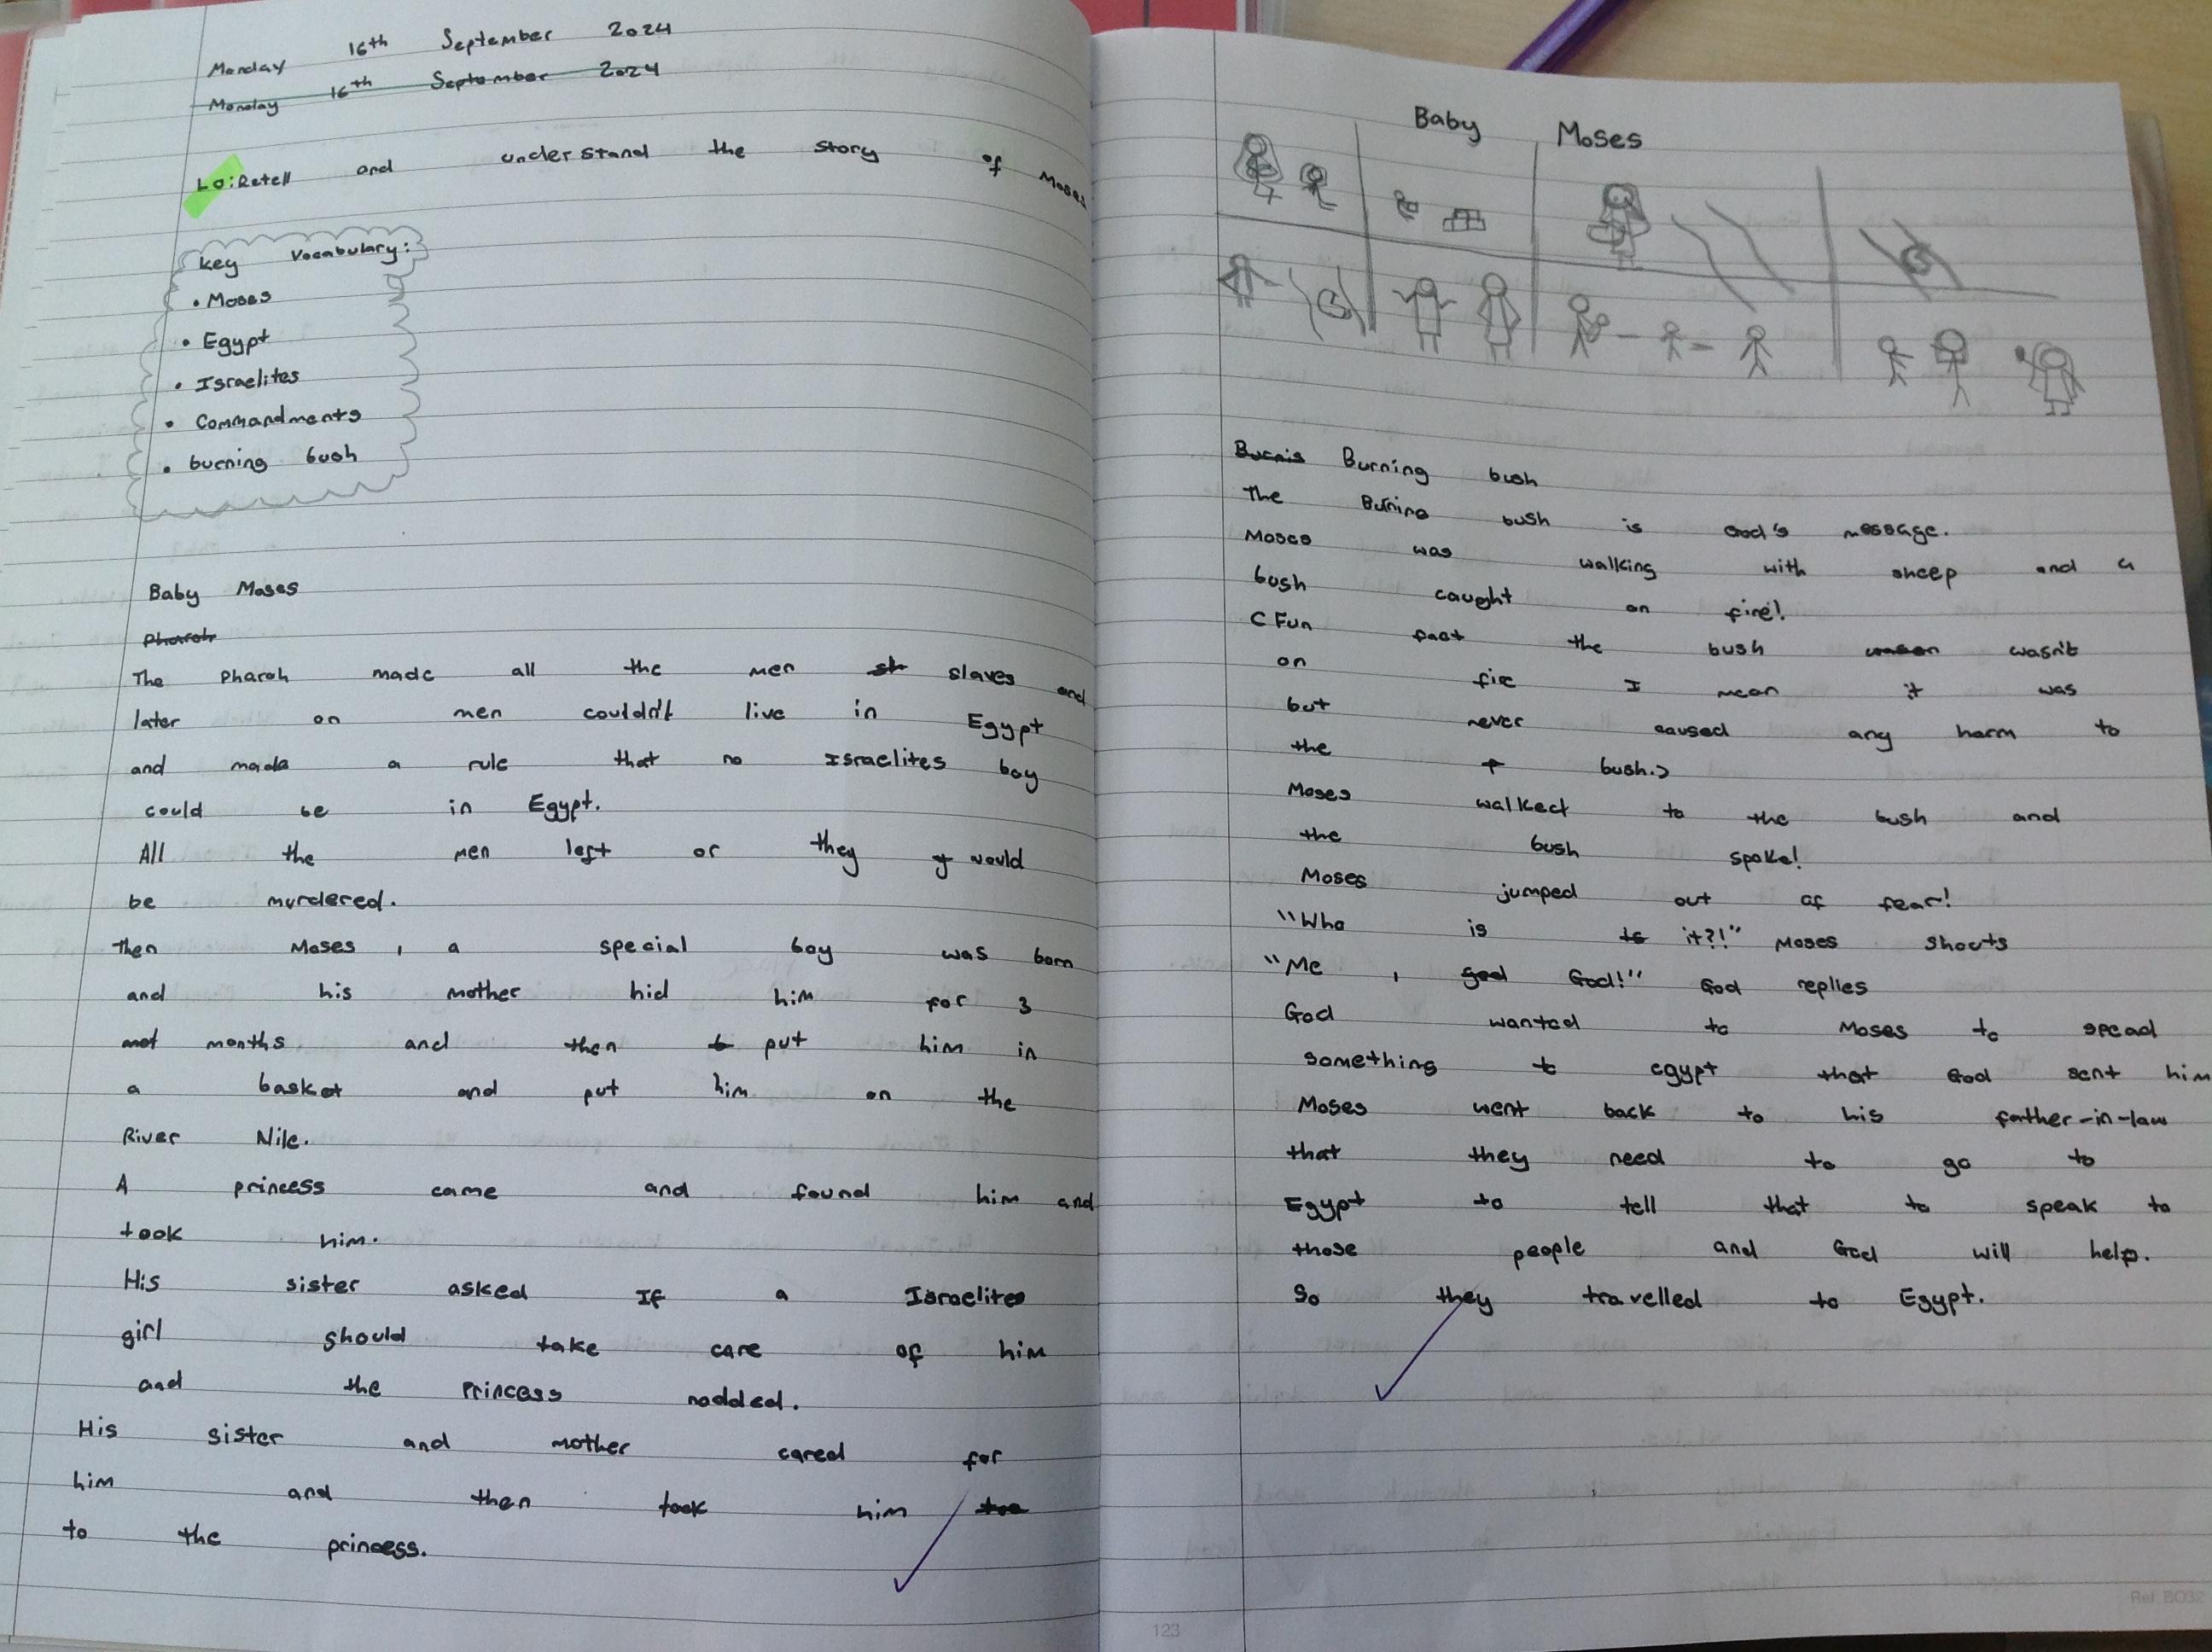 Monday 16th September 2024
Monday 16th September 2024
LO: Retell and understand the story of Moses
Key Vocabulary:
• Moses
• Egypt
• Israelites
• Commandments
• burning bush
Baby Moses
Pharoh
The Pharoh made all the men sl slaves and
later on men couldn't live in Egypt
and made a rule that no Israelites boy
could be in Egypt.
All the men left or they would
be murdered.
Then Moses, a special boy was born
and his mother hid him for 3
mot months and then put him in
a basket and put him on the
River Nile.
A princess came and found him and
took him.
His sister asked If a Israelites
girl should take care of him
and the Princess nodded.
His sister and mother cared for
him and then took him too
to the princess.
123
Baby Moses
Burnis Burning bush
The Burning bush is God's message.
Moses was walking with sheep and a
bush caught on fire!
(Fun fact the bush wasn't
on fire I mean it was
but never caused any harm to
the bush.)
Moses walked to the bush and
the bush spoke!
Moses jumped out of fear!
"Who is ts it?!" Moses shouts
"Me, god God!" God replies
God wanted to Moses to spead
something t egypt that God sent him
Moses went back to his father-in-law
that they need to go to
Egypt to tell that to speak to
those people and God will help.
So they travelled to Egypt.
Ref: BO32